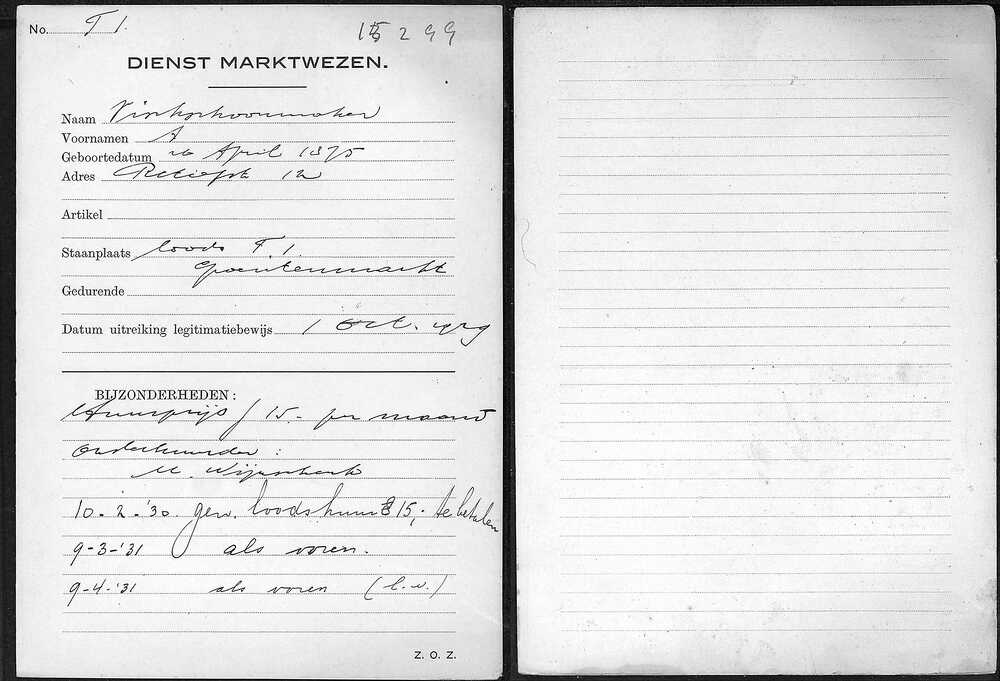 No. T 1.
15299
DIENST MARKTWEZEN.
Naam Vischschoonmaker
Voornamen A
Geboortedatum 26 April 1875
Adres Retiefstr 12
Artikel
Staanplaats loods T. 1.
Groentenmarkt
Gedurende
Datum uitreiking legitimatiebewijs 1 Oct. 1929
BIJZONDERHEDEN:
Huurprijs f 15.- per maand
Onderhuurder:
M. Wijnschenk
10-2-'30. gew. loodshuur f 15,- te betalen
9-3-'31 als voren.
9-4-'31 als voren
Z. O. Z.